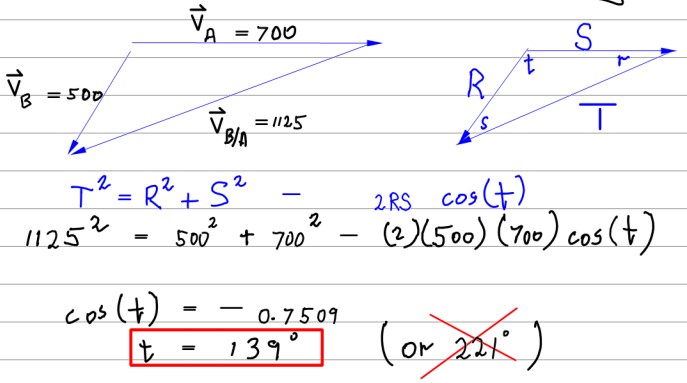 V⃗_A = 700
S
V⃗_B = 500
R
t
r
s
T
V⃗_B/A = 1125
T² = R² + S² - 2RS cos(t)
1125² = 500² + 700² - (2)(500)(700) cos(t)
cos(t) = - 0.7509
t = 139° (or 221°)